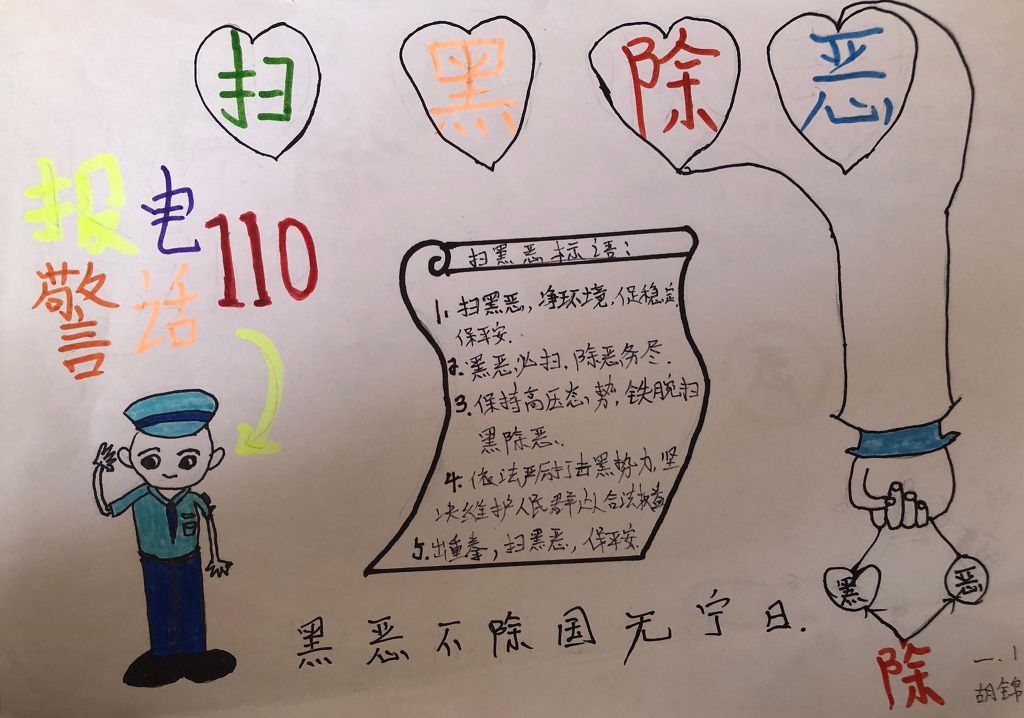 扫 黑 除 恶
报电
警话
110
扫黑恶标语:
1. 扫黑恶,净环境,促稳定,
保平安.
2. 黑恶必扫,除恶务尽.
3. 保持高压态势,铁腕扫
黑除恶.
4. 依法严厉打击黑势力,坚
决维护人民群众合法权益
5. 出重拳,扫黑恶,保平安.
黑 恶
除
黑恶不除国无宁日.
一.1
胡锦